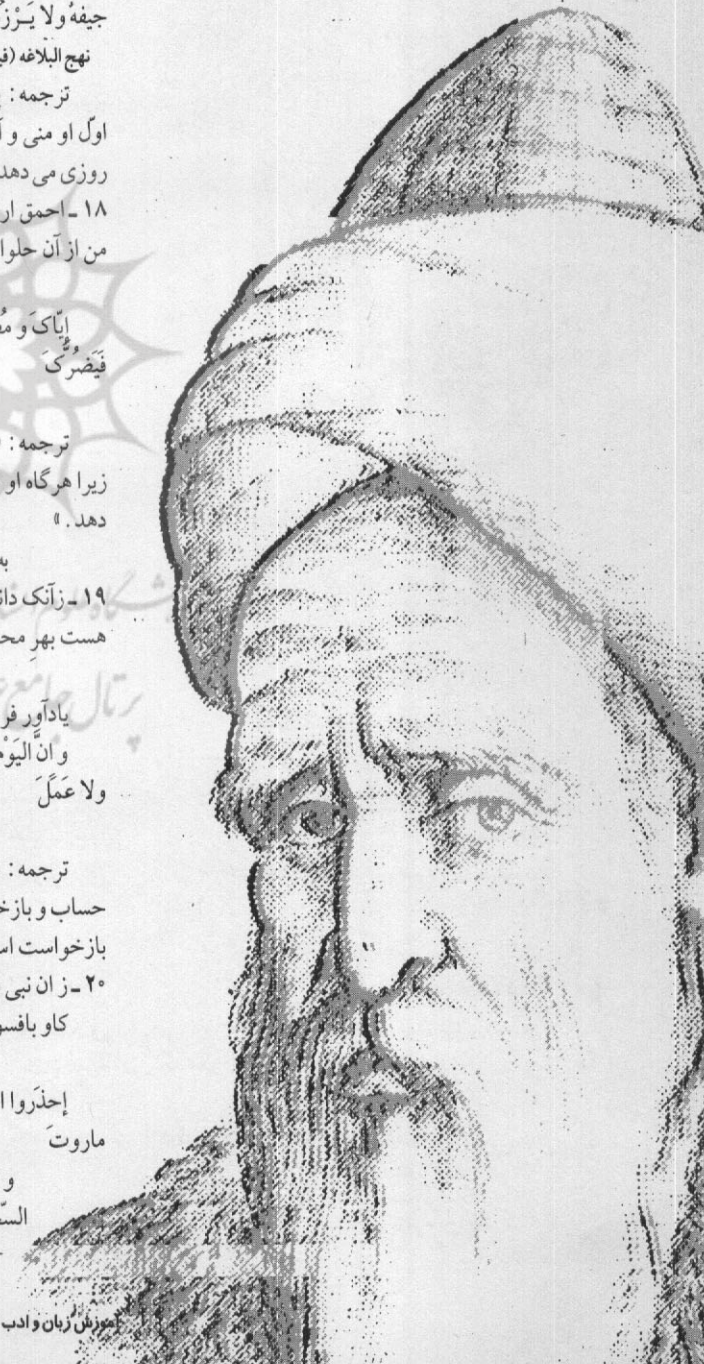 جیفهُ ولا یَـرْز
نهج البلاغه (فی
ترجمه :
اوّل او منی و آ
روزی می دهد
۱۸ ـ احمق ار
من از آن حلوا
إیّاکَ و مُ
فَیَضُرُّکَ
ترجمه :
زیرا هرگاه او
دهد . »
به
۱۹ ـ زآنک دان
هست بهرِ مح
پرتال جامع ع
یادآور فر
و انَّ الیَوْم
ولا عَمَلَ
ترجمه :
حساب و بازخ
بازخواست اس
۲۰ ـ ز ان نبی
کاو بافسو
إحذَروا ا
ماروتَ
و
السّ
آموزش زبان و ادب